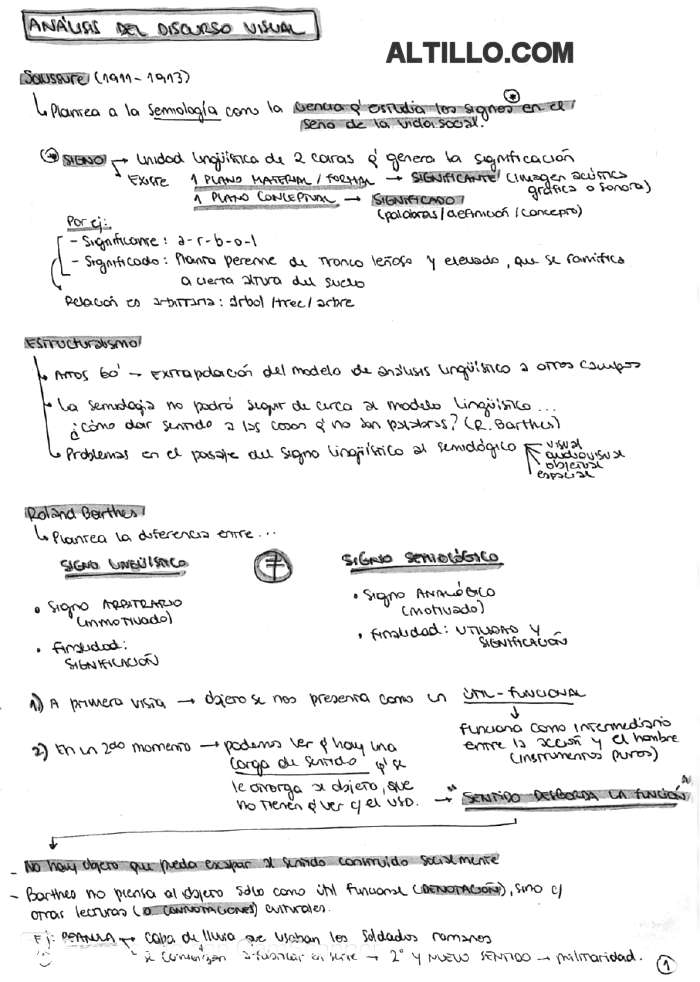 ANÁLISIS DEL DISCURSO VISUAL
ALTILLO.COM
Saussure (1911-1913)
↳ Plantea a la semiología como la ciencia q' estudia los signos en el
seno de la vida social.
* SIGNO → Unidad lingüística de 2 caras q' genera la significación
→ Existe 1 PLANO MATERIAL / FORMAL → SIGNIFICANTE (imagen acústica
gráfica o sonora)
1 PLANO CONCEPTUAL → SIGNIFICADO
(palabras / definición / concepto)
Por ej:
- Significante: a-r-b-o-l
- Significado: Planta perenne de tronco leñoso y elevado, que se ramifica
a cierta altura del suelo
Relación es arbitraria: árbol / tree / arbre
Estructuralismo
Años 60' → Extrapolación del modelo de análisis lingüístico a otros campos
La semiología no podrá seguir de cerca al modelo lingüístico...
¿Cómo dar sentido a las cosas q' no son palabras? (R. Barthes)
Problemas en el pasaje del signo lingüístico al semiológico
visual
audiovisual
objetual
espacial
Roland Barthes
↳ Plantea la diferencia entre...
SIGNO LINGÜÍSTICO ≠ SIGNO SEMIOLÓGICO
• Signo ARBITRARIO
(inmotivado)
• Finalidad:
SIGNIFICACIÓN
• Signo ANALÓGICO
(motivado)
• Finalidad: UTILIDAD Y
SIGNIFICACIÓN
1) A primera vista → objeto se nos presenta como un ÚTIL-FUNCIONAL
↓
Funciona como intermediario
entre la acción y el hombre
(instrumentos puros)
2) En un 2do momento → podemos ver q' hay una
carga de sentido q' se
le otorga al objeto, que
no tienen q' ver c/ el uso. → "SENTIDO DESBORDA LA FUNCIÓN"
- No hay objeto que pueda escapar al sentido construido socialmente
- Barthes no piensa al objeto sólo como útil funcional (DENOTACIÓN), sino c/
otras lecturas (o CONNOTACIONES) culturales.
Ej: → capa de lluvia que usaban los soldados romanos
se comienzan a fabricar en serie → 2º Y NUEVO SENTIDO → militaridad.
1